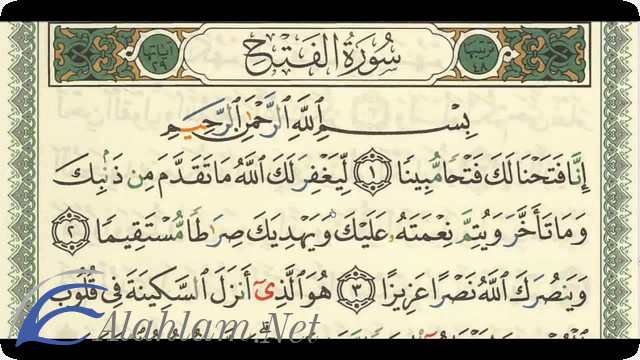 آياتها ٢٩
سُورَةُ الفَتْحِ
ترتيبها ٤٨
بِسْمِ ٱللَّهِ ٱلرَّحْمَٰنِ ٱلرَّحِيمِ
إِنَّا فَتَحْنَا لَكَ فَتْحًا مُّبِينًا ١ لِّيَغْفِرَ لَكَ ٱللَّهُ مَا تَقَدَّمَ مِن ذَنۢبِكَ
وَمَا تَأَخَّرَ وَيُتِمَّ نِعْمَتَهُۥ عَلَيْكَ وَيَهْدِيَكَ صِرَٰطًا مُّسْتَقِيمًا ٢
وَيَنصُرَكَ ٱللَّهُ نَصْرًا عَزِيزًا ٣ هُوَ ٱلَّذِىٓ أَنزَلَ ٱلسَّكِينَةَ فِى قُلُوبِ
Alahlam.Net